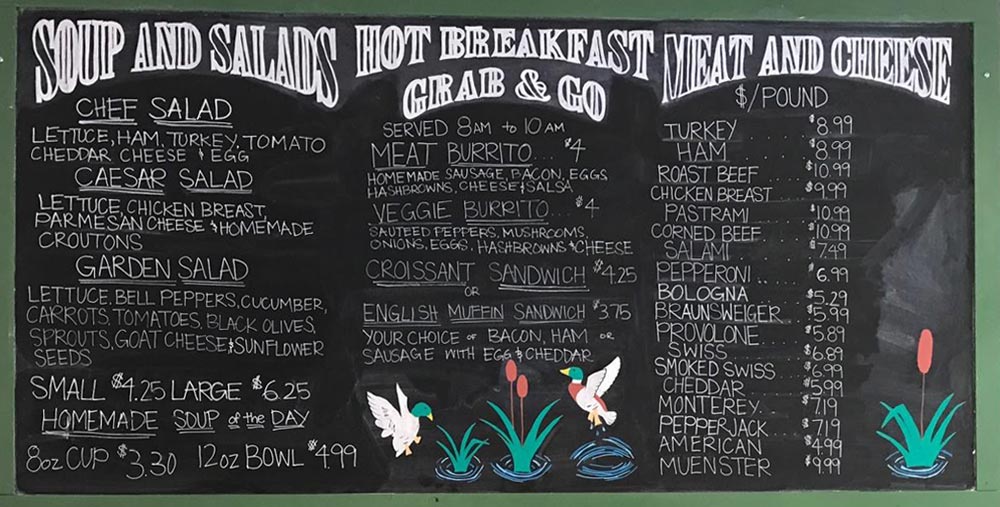 SOUP AND SALADS
CHEF SALAD
LETTUCE, HAM, TURKEY, TOMATO
CHEDDAR CHEESE & EGG
CAESAR SALAD
LETTUCE, CHICKEN BREAST,
PARMESAN CHEESE & HOMEMADE
CROUTONS
GARDEN SALAD
LETTUCE, BELL PEPPERS, CUCUMBER,
CARROTS, TOMATOES, BLACK OLIVES,
SPROUTS, GOAT CHEESE & SUNFLOWER
SEEDS
SMALL $4.25 LARGE $6.25
HOMEMADE SOUP of the DAY
8oz CUP $3.30 12oz BOWL $4.99
HOT BREAKFAST
GRAB & GO
SERVED 8AM to 10AM
MEAT BURRITO... $4
HOMEMADE SAUSAGE, BACON, EGGS,
HASHBROWNS, CHEESE & SALSA
VEGGIE BURRITO... $4
SAUTEED PEPPERS, MUSHROOMS,
ONIONS, EGGS, HASHBROWNS & CHEESE
CROISSANT SANDWICH $4.25
OR
ENGLISH MUFFIN SANDWICH $3.75
YOUR CHOICE OF BACON, HAM OR
SAUSAGE WITH EGG & CHEDDAR
MEAT AND CHEESE
$/POUND
TURKEY .... $8.99
HAM .... $8.99
ROAST BEEF .... $10.99
CHICKEN BREAST .. $9.99
PASTRAMI .... $10.99
CORNED BEEF .. $10.99
SALAMI .... $7.49
PEPPERONI .... $6.99
BOLOGNA .... $5.29
BRAUNSWEIGER .. $5.99
PROVOLONE .... $5.89
SWISS .... $6.89
SMOKED SWISS .. $6.99
CHEDDAR .... $5.99
MONTEREY .... $7.19
PEPPERJACK .. $7.19
AMERICAN .... $4.99
MUENSTER .... $9.99